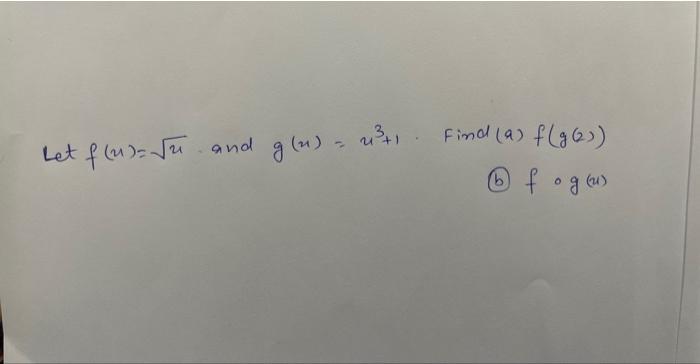 Let f(x)=√x . and g(x) = x³+1 . Find (a) f(g(2))
(b) f ∘ g(x)